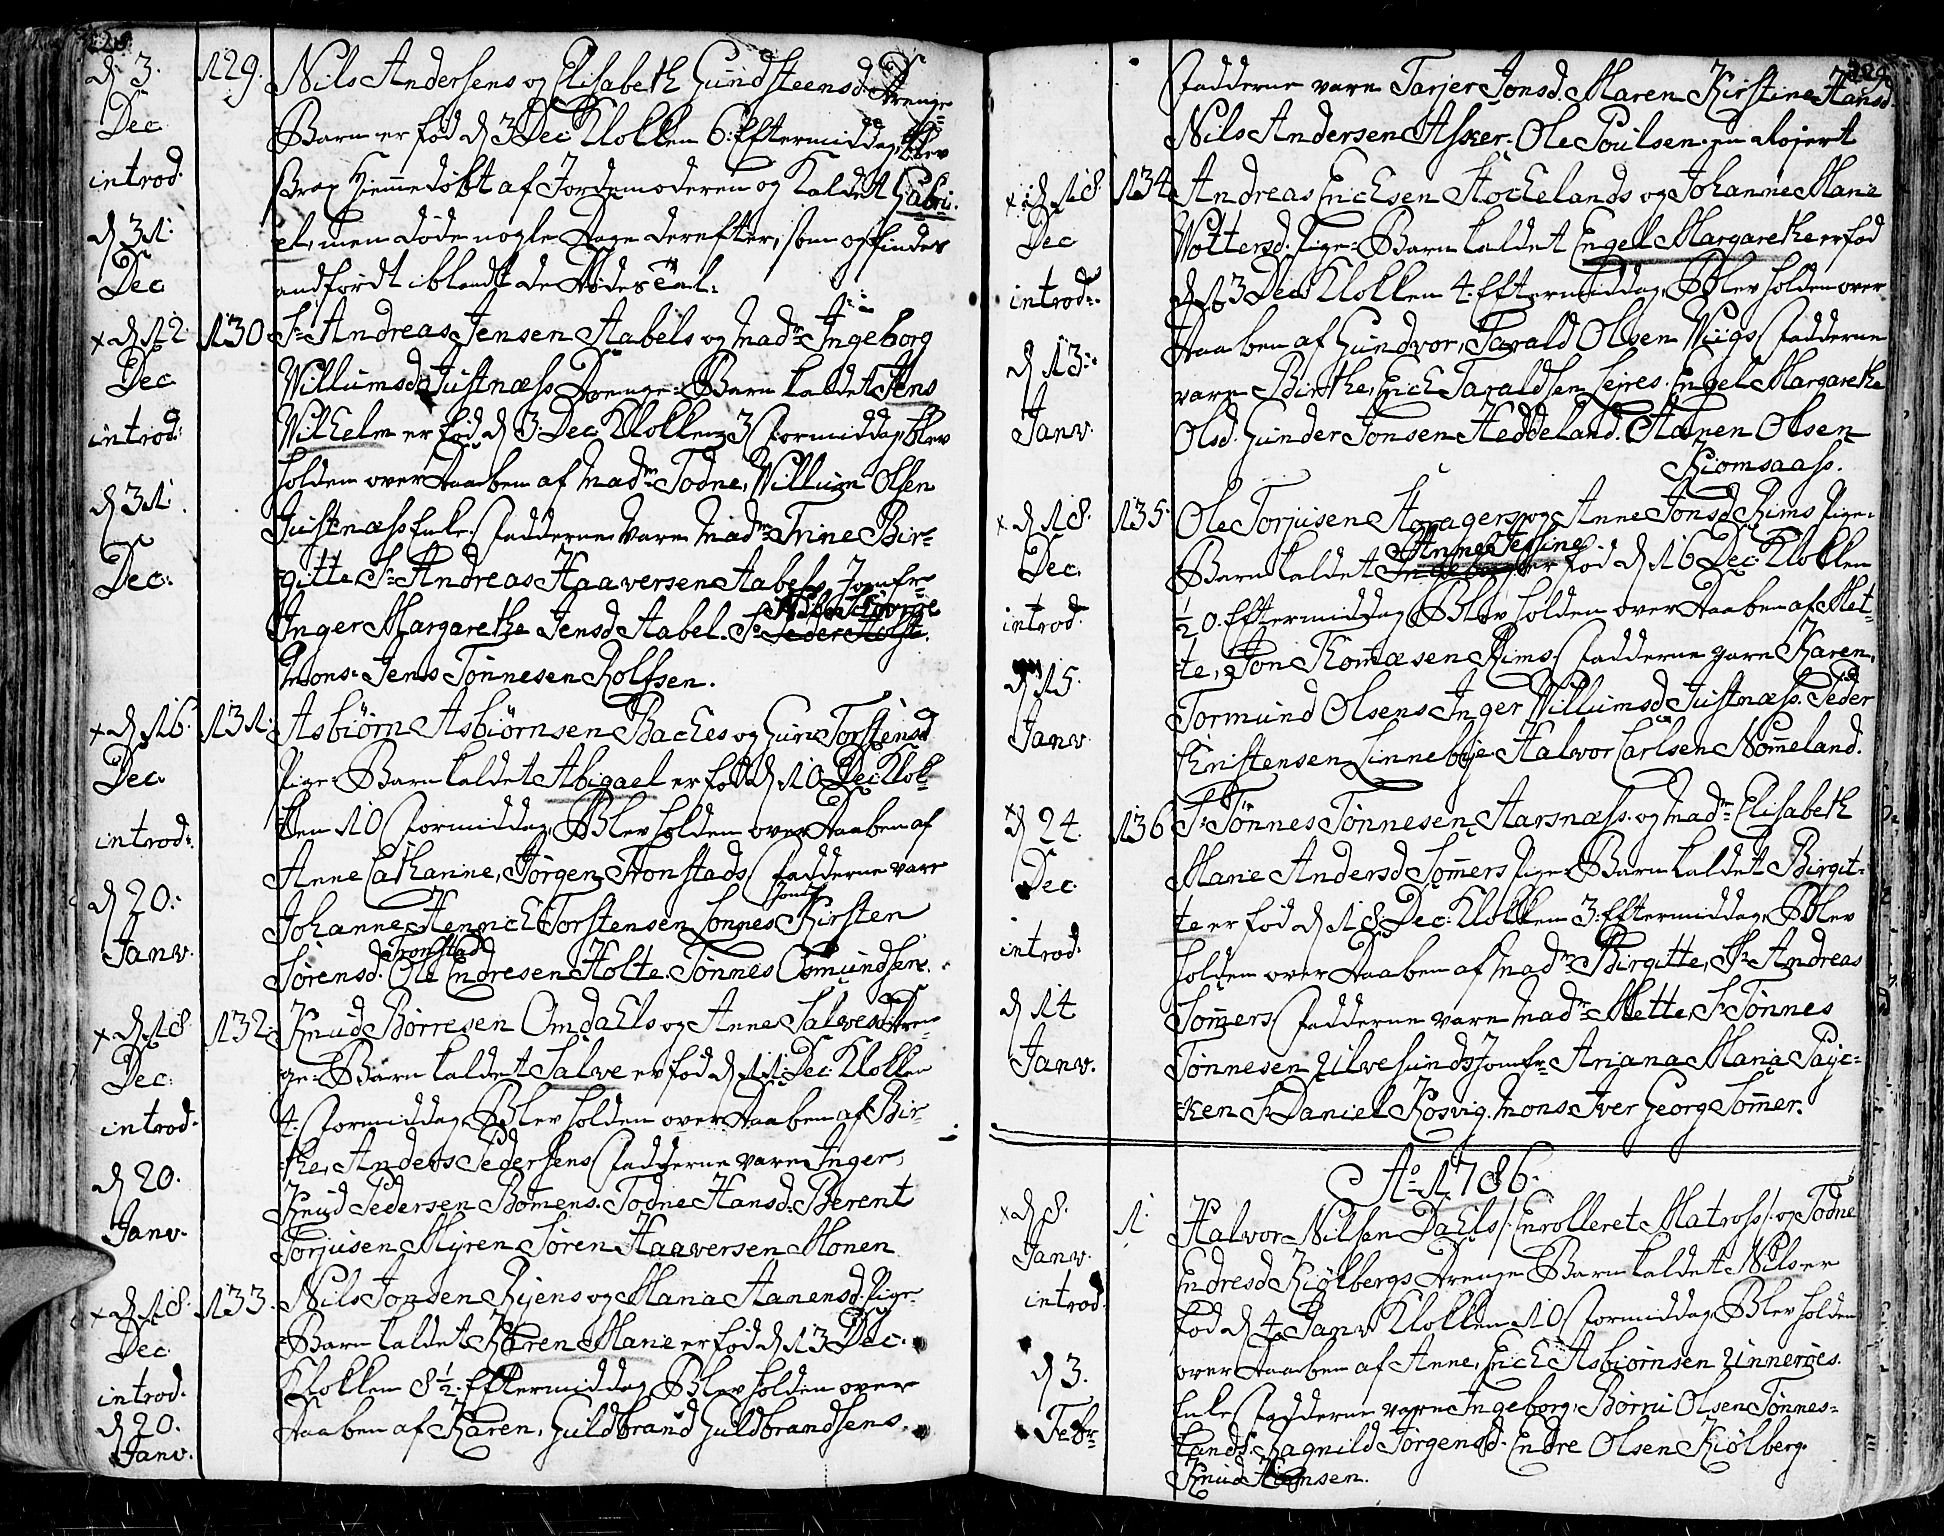 d. 3.
Dec
introd.
d 31.
Dec
129.
Nils Andersens og Elisabeth Gundsteensd. Drenge
Barn er fød d 3 Dec: Klokken 6. Eftermiddag, blev
strax Hiemmedøbt af Jordemoderen og kaldet Gabri-
el, men døde nogle Dage derefter, som og findes
andført iblandt de Dødes Tal.
x d 12
Dec
introd:
d 31.
Dec:
130
Sr Andreas Jensen Aabels og Madm Ingeborg
Willumsd Justnæss Drenge-Barn kaldet Jens
Wilhelm er fød d 3 Dec Klokken 3 Formiddag, blev
holden over Daaben af Madm Todne, Willum Olsen
Justnæss Enke. Fadderne vare Madm Trine Bir-
gitte, Sr Andreas Haaversen Aabels, Jomfr
Inger Margarethe Jensd Aabel. Sr Peder Holst.
Mons: Jens Tønnesen Rolfsen.
x d 16.
Dec.
introd:
d 20.
Janv.
131.
Asbiørn Asbiørnsen Baches og Guri Torstensd
Pige-Barn kaldet Abigael er fød d 10 Dec: Klok-
ken 10 Formiddag, Blev holden over Daaben af
Anne Cathanne, Jørgen Tronstads, Fadderne vare
Johanne Henrich Torstensen Lonnes Kirsten
Tronstad
Sørensd. Ole Endresen Holte. Tønnes Osmundsen.
x d 18
Dec:
introd.
d 20.
Janv.
132.
Knud Børresen Omdahls og Anne Salvesd Dren-
ge-Barn kaldet Salve er fød d 11 Dec: Klokken
4. Formiddag, Blev holden over Daaben af Bir-
the, Anders Pedersens, Fadderne vare Inger,
Knud Pedersen Bomens. Todne Hansd. Berent
Torjusen Myren Søren Haaversen Monen
x d 18.
Dec
introd.
d 20.
Janv.
133.
Nils Jonsen Ryens og Maria Aanensd. Pige-
Barn kaldet Karen Marie er fød d 13 Dec.
Klokken 8½. Eftermiddag, Blev holden over
Daaben af Karen, Guldbrand Guldbrandsens.
Fadderne vare Tarjer Jonsd. Maren Kirstine Hansd.
Nils Andersen Asker. Ole Poulsen
x d 18.
Dec
introd:
d 13:
Janv.
134
Andreas Erichsen Høchelands og Johanne Marie
Wottersd. Pige-Barn kaldet Engel Margarethe er fød
d 13 Dec Klokken 4. Eftermiddag, Blev holden over
Daaben af Gundvor, Tarald Olsen Wiigs, Fadderne
vare Birthe, Erich Taraldsen Lejres. Engel Margarethe
Olsd. Gunder Jonsen Heddeland. Aanen Olsen
Kiomsaass.
x d 18.
Dec.
introd.
d 15.
Janv.
135.
Ole Torjusen Aaragers og Anne Jonsd Rims Pige-
Anne Jessine
Barn kaldet er fød d 16 Dec: Klokken
½ 0. Eftermiddag, Blev holden over Daaben af Met-
te, Jon Thomæsen Rims, Fadderne vare Karen,
Tormund Olsens Inger Willumsd Justnæss. Peder
Christensen Linnebøje Halvor Carlsen Nommeland.
x d 24.
Dec.
introd.
d 14
Janv.
136
Sr Tønnes Tønnesen Aarsnæss. og Madm Elisabeth
Marie Andersd Sommers Pige-Barn kaldet Birgit-
te er fød d 18 Dec: Klokken 3. Eftermiddag, Blev
holden over Daaben af Madm Birgitte, Sr Andreas
Sommers, Fadderne vare Madm Mette, Sr Tønnes
Tønnesen Ulvesunds Jomfr Ariana Maria Paye-
ken Sr Daniel Kosvig. Mons: Iver Georg Sommer.
Ao 1786.
x d 8.
Janv.
introd.
d 3.
Febr
1.
Halvor Nilsen Dahls /: Enrolleret Matross :/ og Todne
Endresd Kiølbergs Drenge-Barn kaldet Nils er
fød d 4 Janv Klokken 10 Formiddag, Blev holden
over Daaben af Anne, Erich Asbiørnsen Unneroes.
Enke, Fadderne vare Ingeborg, Børri Olsen Tønnes-
lands. Ragnild Jørgensd. Endre Olsen Kiølberg.
Knud Hansen.